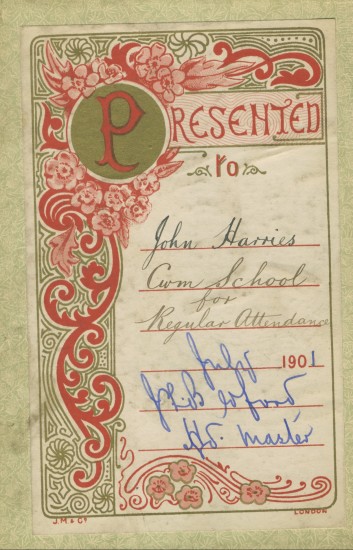 PRESENTED
To
John Harries
Cwm School
for
Regular Attendance
July 1901
Hd. Master
J.M & Co LONDON